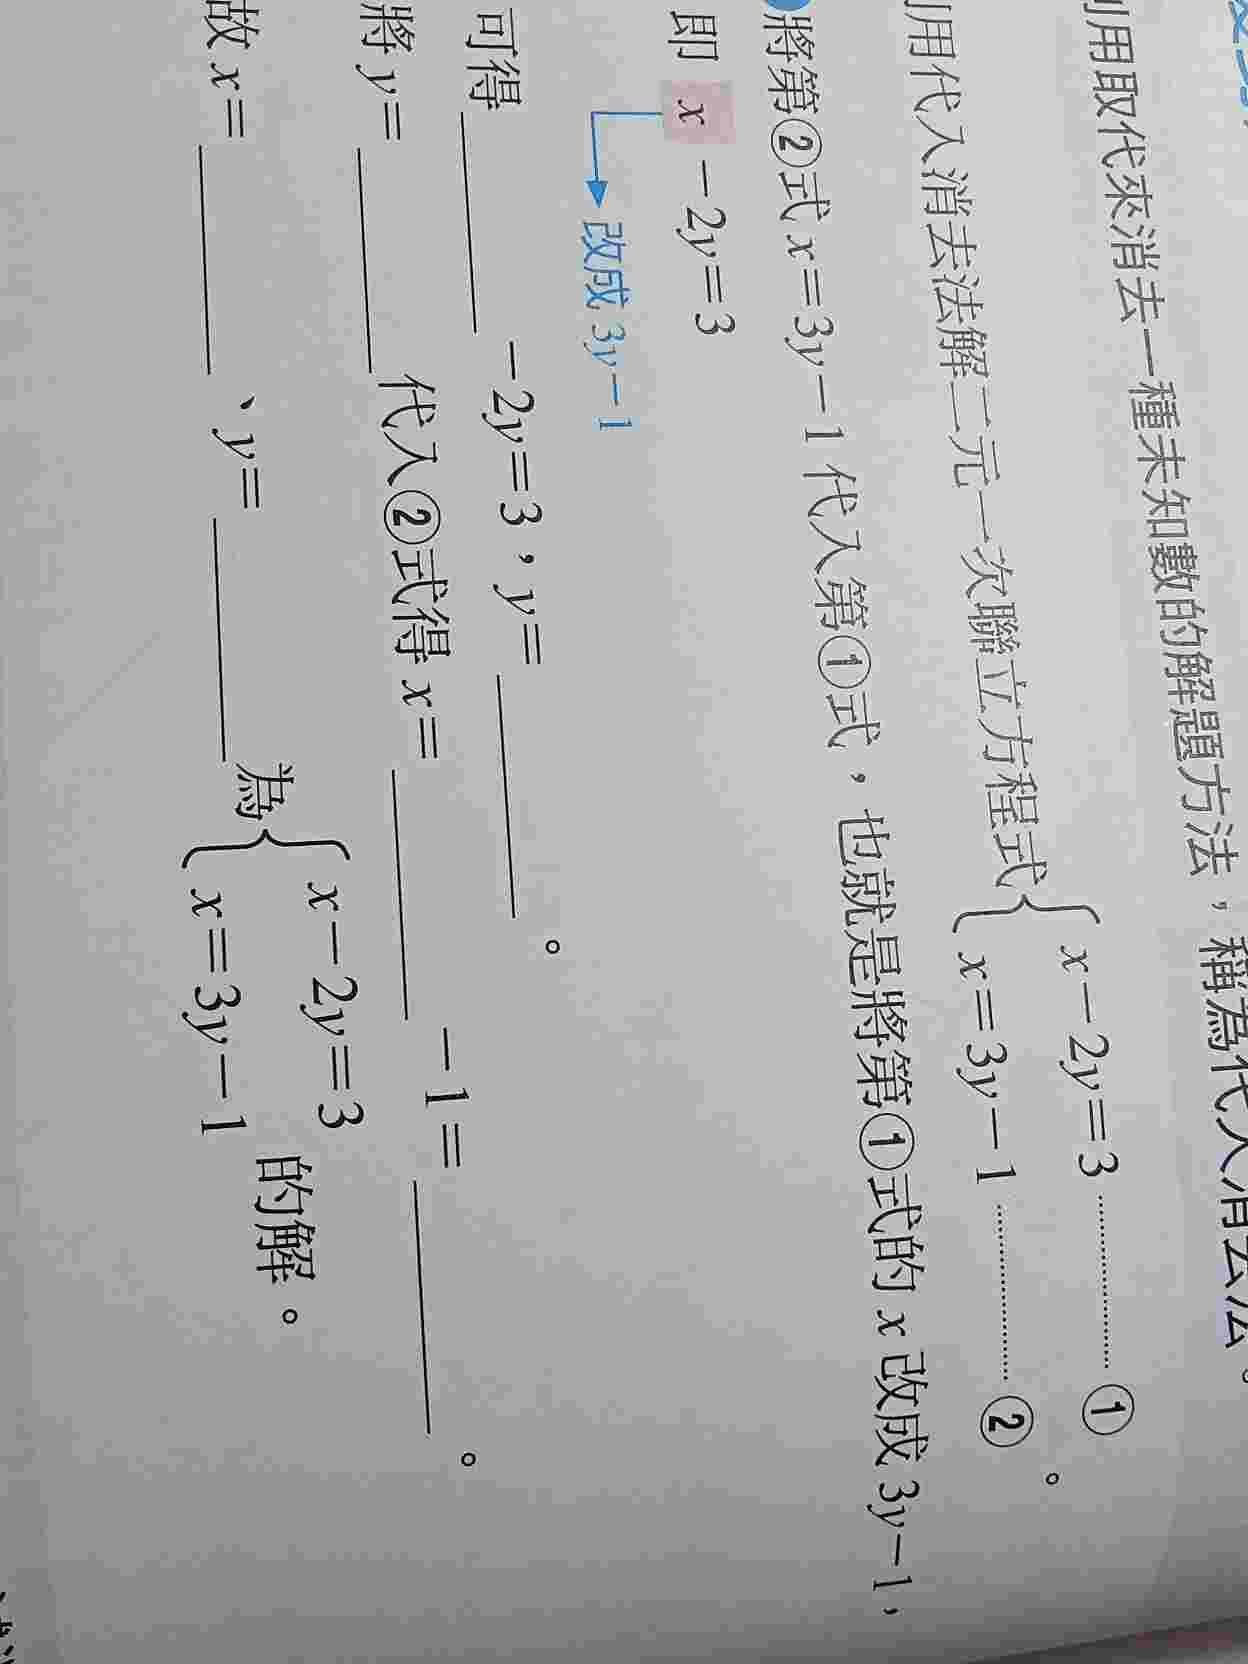 用取代來消去一種未知數的解題方法，稱為代入消去法。
用代入消去法解二元一次聯立方程式{ x-2y=3 ………… ①
x=3y-1 ………… ② 。
將第②式 x=3y-1 代入第①式，也就是將第①式的 x 改成 3y-1，
即 x -2y=3
改成 3y-1
可得 ______ -2y=3，y= ______ 。
將 y= ______ 代入②式得 x= ______ -1= ______ 。
故 x= ______ 、y= ______ 為{ x-2y=3
x=3y-1 的解。